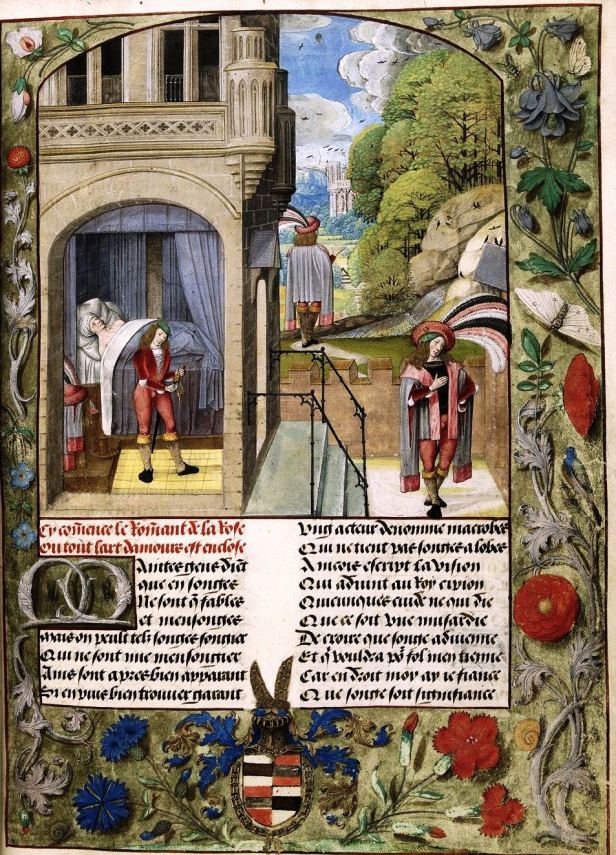 Cy cõmence le Rõmant de la Rose
Ou tout lart damours est enclose
Maintes gens diẽt
que en songes
Ne sont q̃ fables
et mensonges
Mais on peult telz songes songier
Qui ne sont mie mensongier
Ains sont apres bien apparant
Si en puis bien trouver garant
Ung acteur denomme macrobes
Qui ne tient pas songes a lobes
Aincois escript la vision
Qui advint au Roy cipion
Quiconques cuide ne qui die
Que ce soit une musardie
De croire que songe adviengne
Et q̃ vouldra po᷑ fol men tiengne
Car en droit moy ay ie fiance
Que songe soit signifiance